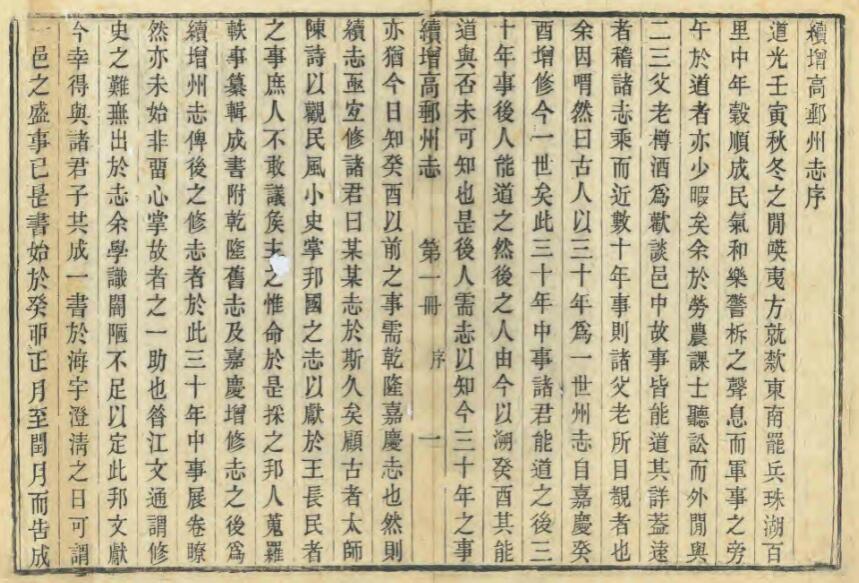 續增高郵州志序
道光壬寅秋冬之閒𠸄夷方就欵東南罷兵珠湖百
里中年穀順成民氣和樂警柝之聲息而軍事之旁
午於道者亦少暇矣余於勞農課士聽訟而外閒與
二三父老樽酒爲歡談邑中故事皆能道其詳葢遠
者稽諸志乘而近數十年事則諸父老所目覩者也
余因喟然曰古人以三十年爲一世州志自嘉慶癸
酉增修今一世矣此三十年中事諸君能道之後三
十年事後人能道之然後之人由今以溯癸酉其能
道與否未可知也是後人需志以知今三十年之事
續增高郵州志 第一冊 序 一
亦猶今日知癸酉以前之事需乾隆嘉慶志也然則
續志亟宜修諸君曰某某志於斯久矣顧古者太師
陳詩以觀民風小史掌邦國之志以獻於王長民者
之事庶人不敢議矦主之惟命於是採之邦人蒐羅
軼事纂輯成書附乾隆舊志及嘉慶增修志之後爲
續增州志俾後之修志者於此三十年中事展卷瞭
然亦未始非畱心掌故者之一助也昝江文通謂修
史之難無出於志余學識闇陋不足以定此邦文獻
今幸得與諸君子共成一書於海宇澄淸之日可謂
一邑之盛事已是書始於癸卯正月至閏月而告成